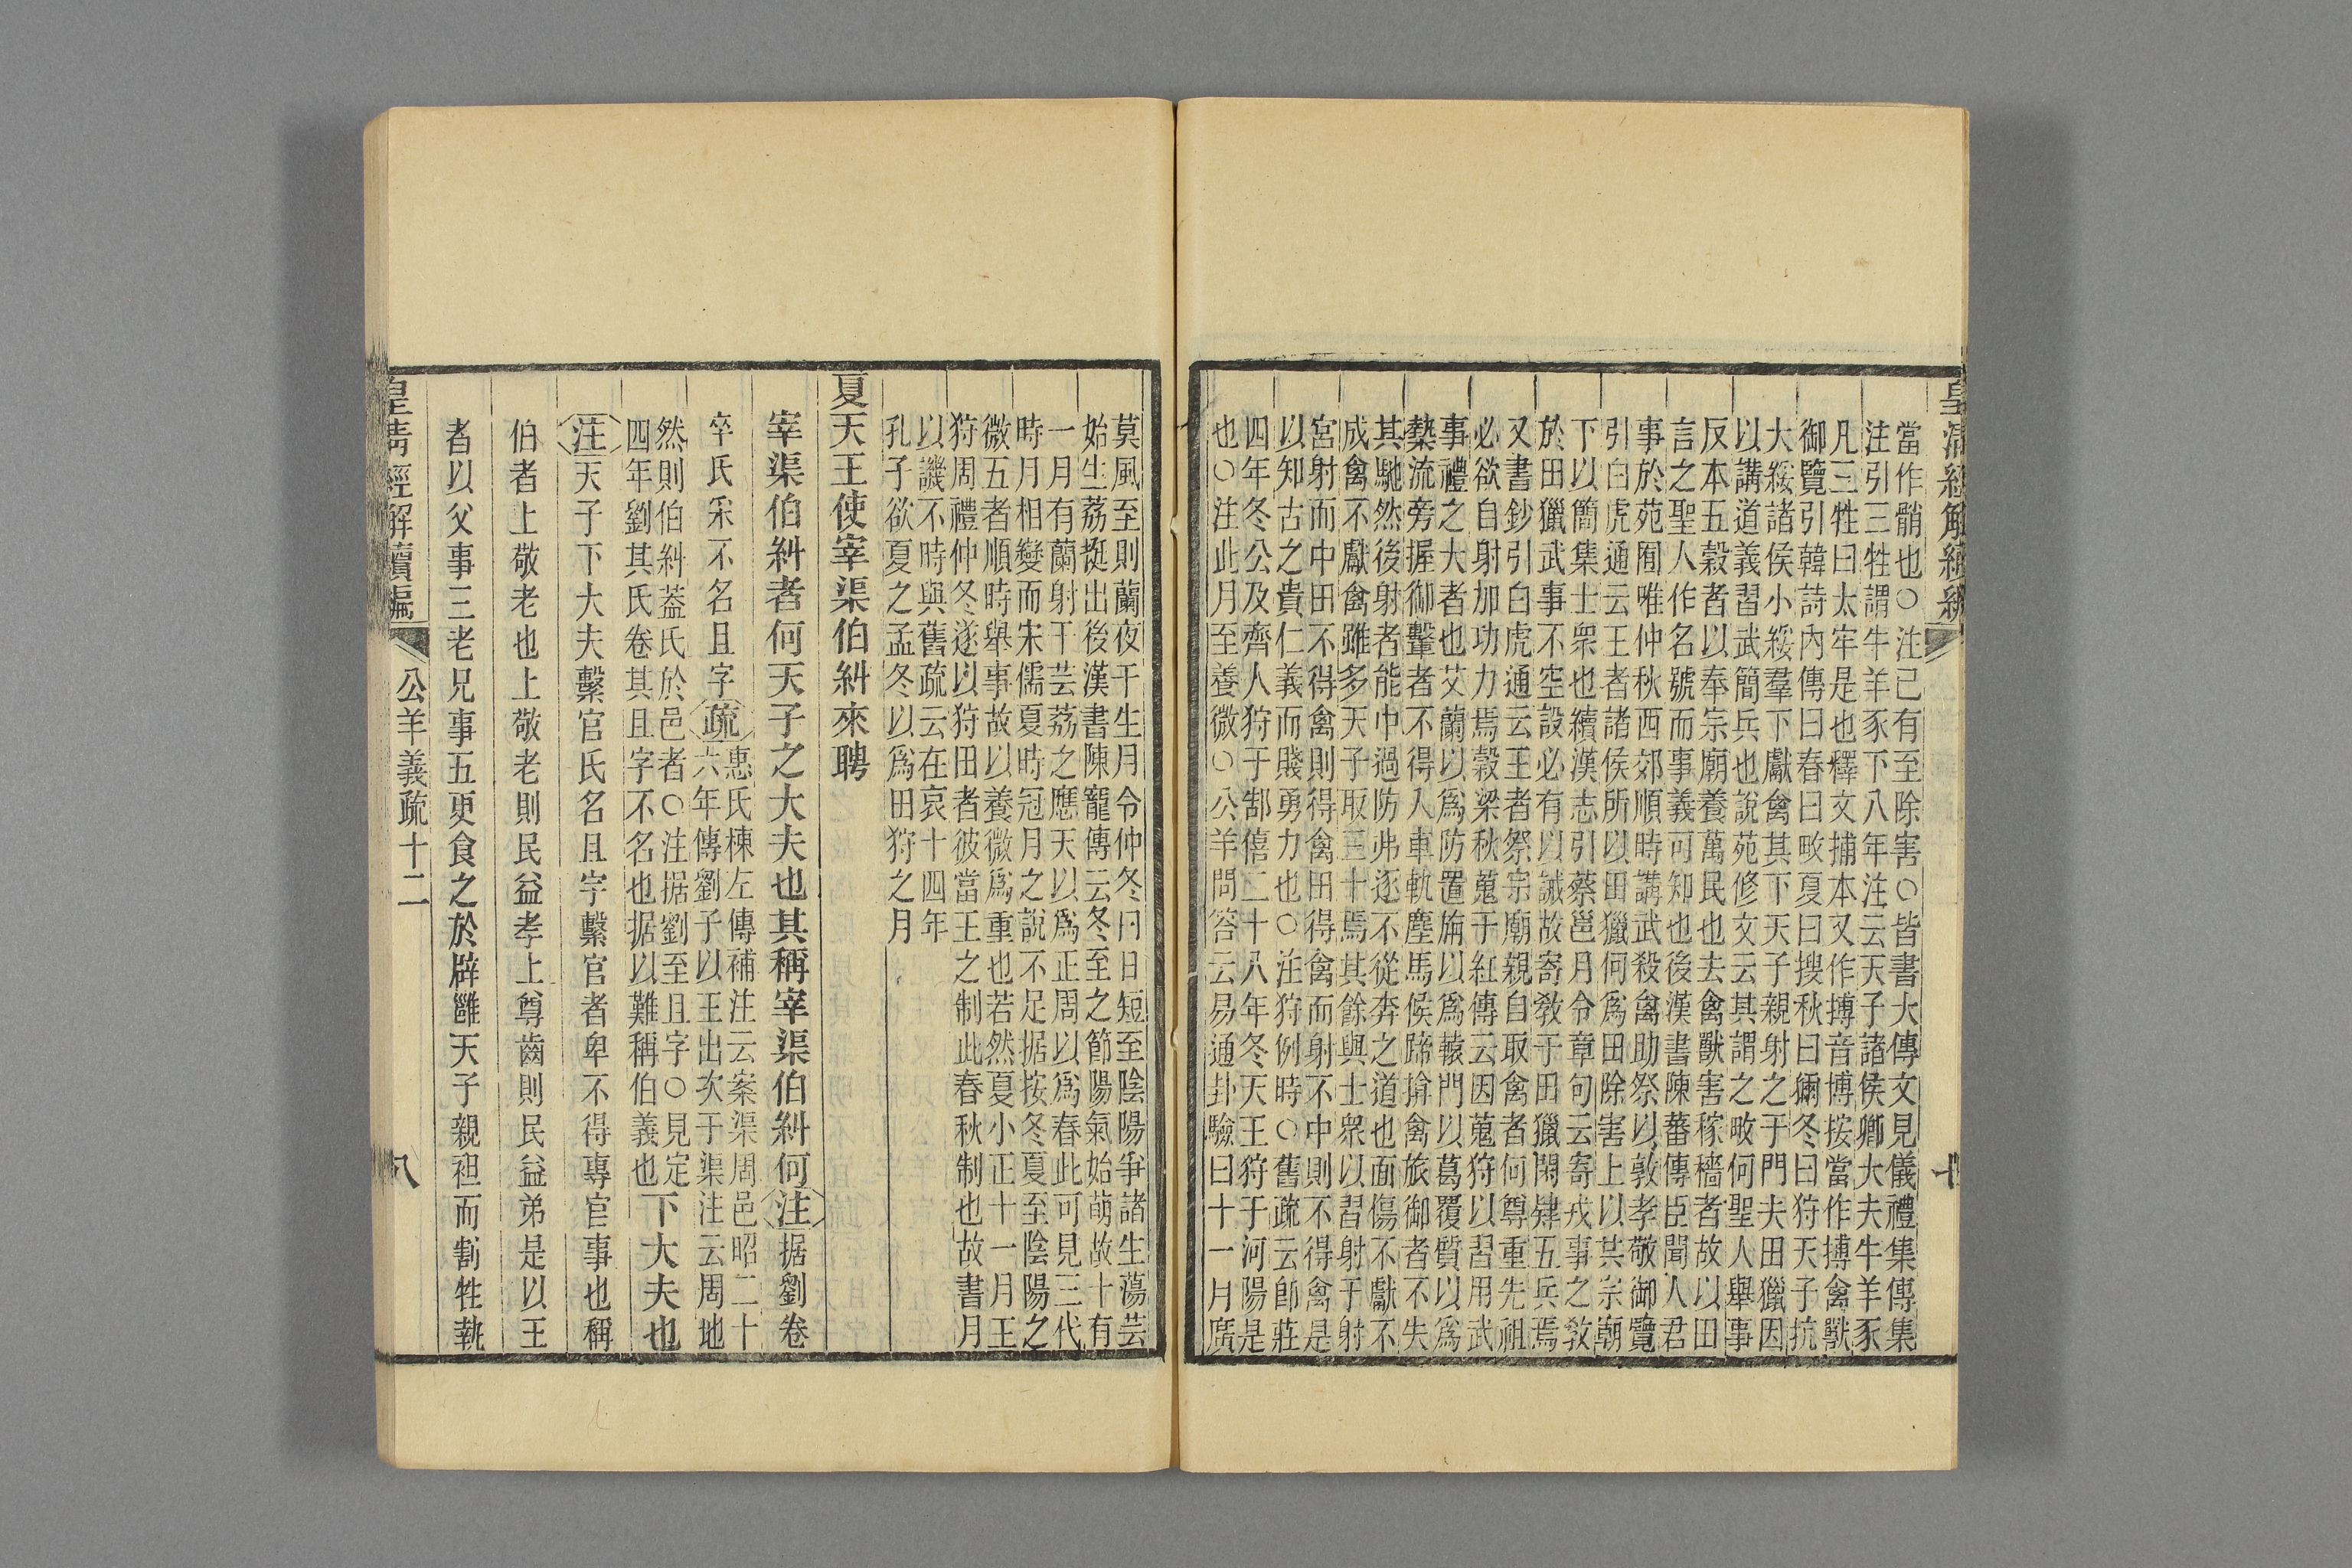 皇清經解續編
當作韒也○注已有至除害○皆書大傳文見儀禮集傳集
注引三牲謂牛羊豕下八年注云天子諸侯卿大夫牛羊豕
凡三牲曰太牢是也釋文捕本又作搏音博按當作搏禽獸
御覽引韓詩內傳曰春曰畋夏曰搜秋曰獮冬曰狩天子抗
大綏諸侯小綏羣下獻禽其下天子親射之于門夫田獵因
以講道義習武簡兵也說苑修文云其謂之畋何聖人舉事
反本五穀者以奉宗廟養萬民也去禽獸害稼穡者故以田
言之聖人作名號而事義可知也後漢書陳蕃傳臣聞人君
事於苑囿唯仲秋西郊順時講武殺禽助祭以敦孝敬御覽
引白虎通云王者諸侯所以田獵何爲田除害上以其宗廟
下以簡集士眾也續漢志引蔡邕月令章句云寄戎事之敎
於田獵武事不空設必有以誡故寄敎于田獵閑肄五兵焉
又書鈔引白虎通云王者祭宗廟親自取禽者何尊重先祖
必欲自射加功力焉穀梁秋蒐于紅傳云因蒐狩以習用武
事禮之大者也艾蘭以爲防置旃以爲轅門以葛覆質以爲
槷流旁握御轚者不得入車軌塵馬候蹄揜禽旅御者不失
其馳然後射者能中過防弗逐不從奔之道也面傷不獻不
成禽不獻禽雖多天子取三十焉其餘與士眾以習射于射
宮射而中田不得禽則得禽田得禽而射不中則不得禽是
以知古之貴仁義而賤勇力也○注狩例時○舊疏云卽莊
四年冬公及齊人狩于郜僖二十八年冬天王狩于河陽是
也○注此月至養微○公羊問答云易通卦驗曰十一月廣
莫風至則蘭夜干生月令仲冬曰日短至陰陽爭諸生蕩芸
始生荔挺出後漢書陳寵傳云冬至之節陽氣始萌故十有
一月有蘭射干芸荔之應天以爲正周以爲春此可見三代
時月相變而宋儒夏時冠月之說不足据按冬夏至陰陽之
微五者順時舉事故以養微爲重也若然夏小正十一月王
狩周禮仲冬遂以狩田者彼當王之制此春秋制也故書月
以譏不時與舊疏云在哀十四年
孔子欲夏之孟冬以爲田狩之月
夏天王使宰渠伯糾來聘
宰渠伯糾者何天子之大夫也其稱宰渠伯糾何注据劉卷
卒氏采不名且字疏惠氏棟左傳補注云案渠周邑昭二十
六年傳劉子以王出次于渠注云周地
然則伯糾葢氏於邑者○注据劉至且字○見定
四年劉其氏卷其且字不名也据以難稱伯義也下大夫也
注天子下大夫繫官氏名且字繫官者卑不得專官事也稱
伯者上敬老也上敬老則民益孝上尊齒則民益弟是以王
者以父事三老兄事五更食之於辟雝天子親袒而割牲執
皇淸經解續編
公羊義疏十二
八